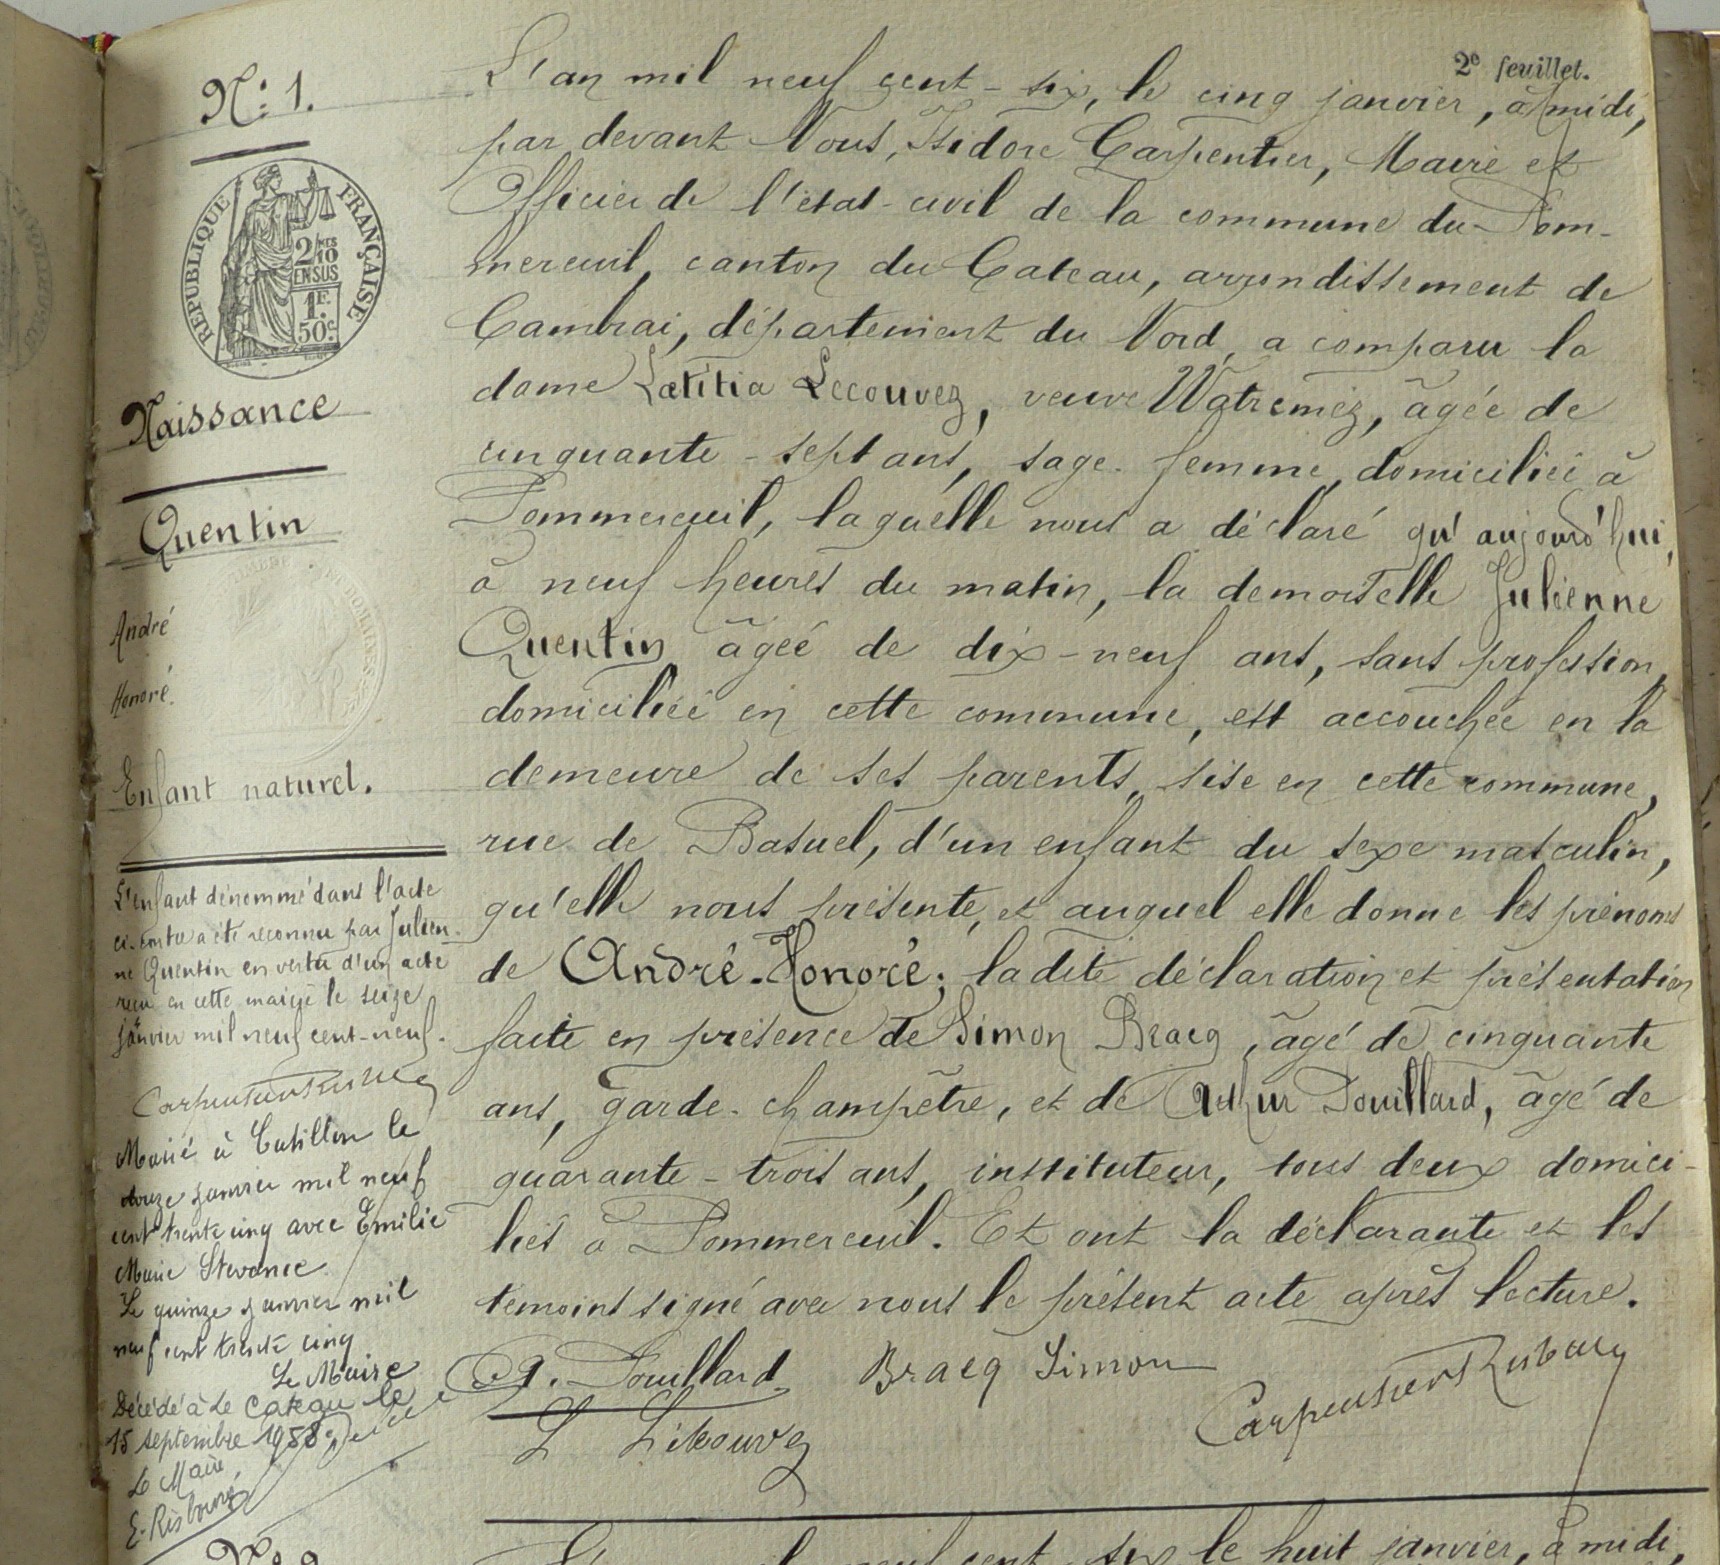 2e feuillet.
N° 1.
RÉPUBLIQUE FRANÇAISE
2/10 MES
EN SUS
1F.
50c.
Naissance
Quentin
André
Honoré.
Enfant naturel.
L'enfant dénommé dans l'acte
ci-contre a été reconnu par Julien-
ne Quentin en vertu d'un acte
reçu en cette mairie le seize
janvier mil neuf cent-neuf.
Marié à Catillon le
douze janvier mil neuf
cent trente cinq avec Emilie
Marie Stevance
Le quinze janvier mil
neuf cent trente cinq
Le Maire
Décédé à Le Cateau le
15 septembre 1958
Le Maire
L'an mil neuf cent-six, le cinq janvier, à midi,
par devant Nous, Isidore Carpentier, Maire et
Officier de l'état-civil de la commune du Pom-
mereuil, canton du Cateau, arrondissement de
Cambrai, département du Nord, a comparu la
dame Lætitia Lecouvez, veuve Watremez, âgée de
cinquante-sept ans, sage-femme, domiciliée à
Pommereuil, laquelle nous a déclaré qu'aujourd'hui,
à neuf heures du matin, la demoiselle Julienne
Quentin âgée de dix-neuf ans, sans profession,
domiciliée en cette commune, est accouchée en la
demeure de ses parents, sise en cette commune,
rue de Basuel, d'un enfant du sexe masculin,
qu'elle nous présente, et auquel elle donne les prénoms
de André-Honoré; ladite déclaration et présentation
faite en présence de Simon Bracq, âgé de cinquante
ans, garde-champêtre, et de Arthur Douillard, âgé de
quarante-trois ans, instituteur, tous deux domici-
liés à Pommereuil. Et ont la déclarante et les
témoins signé avec nous le présent acte après lecture.
A. Douillard Bracq Simon
L Lécouvez
cent-six le huit janvier, à midi,